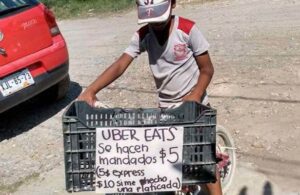 UBER EATS
Se hacen
mandados $5
(5$ express
$10 si me ♥hecho
una platicada)